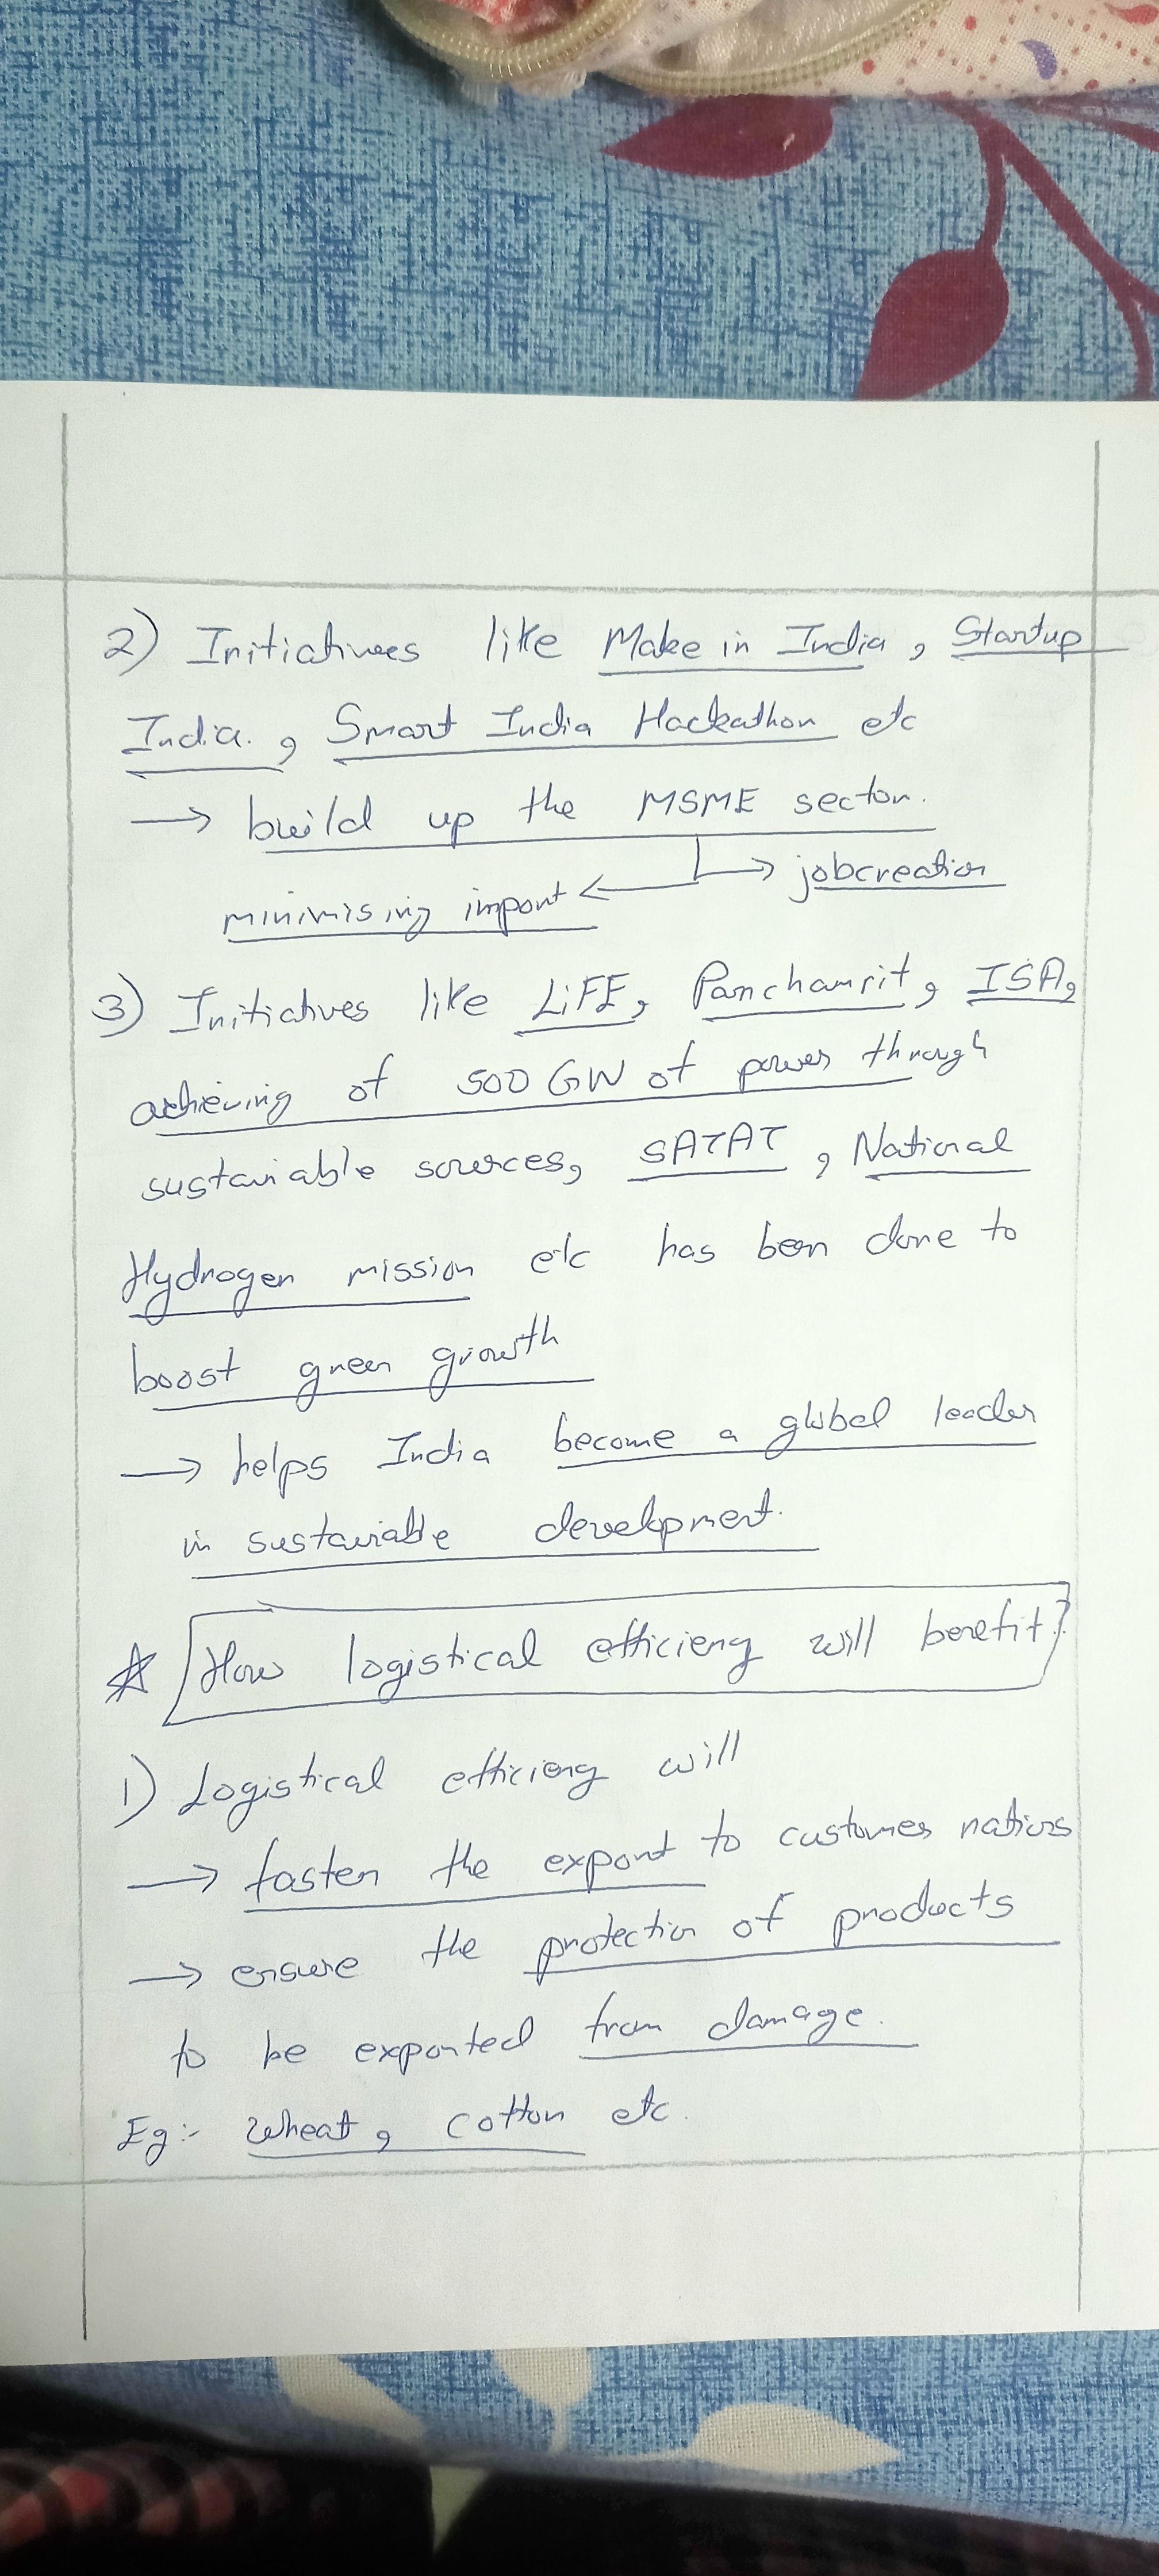 2) Initiatives like Make in India, Startup
India, Smart India Hackathon etc
→ build up the MSME sector.
→ jobcreation
minimising import ←
3) Initiatives like LiFE, Panchamrit, ISA,
achieving of 500 GW of power through
sustainable sources, SATAT, National
Hydrogen mission etc has been done to
boost green growth
→ helps India become a global leader
in sustainable development.
☆ How logistical efficiency will benefit?
1) Logistical efficiency will
→ fasten the export to customer nations
→ ensure the protection of products
to be exported from damage.
Eg:- Wheat, cotton etc.